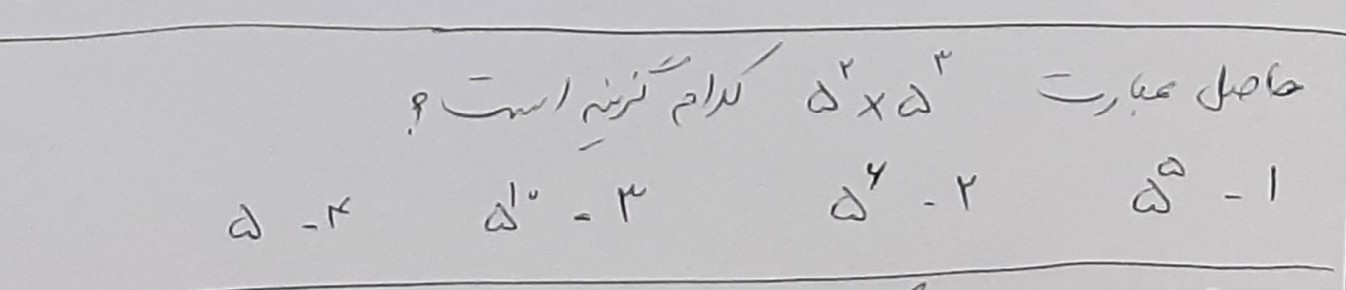 حاصل عبارت ۵^۲ × ۵^۳ کدام گزینه است؟
۱ - ۵^۵ ۲ - ۵^۶ ۳ - ۵^۱۰ ۴ - ۵